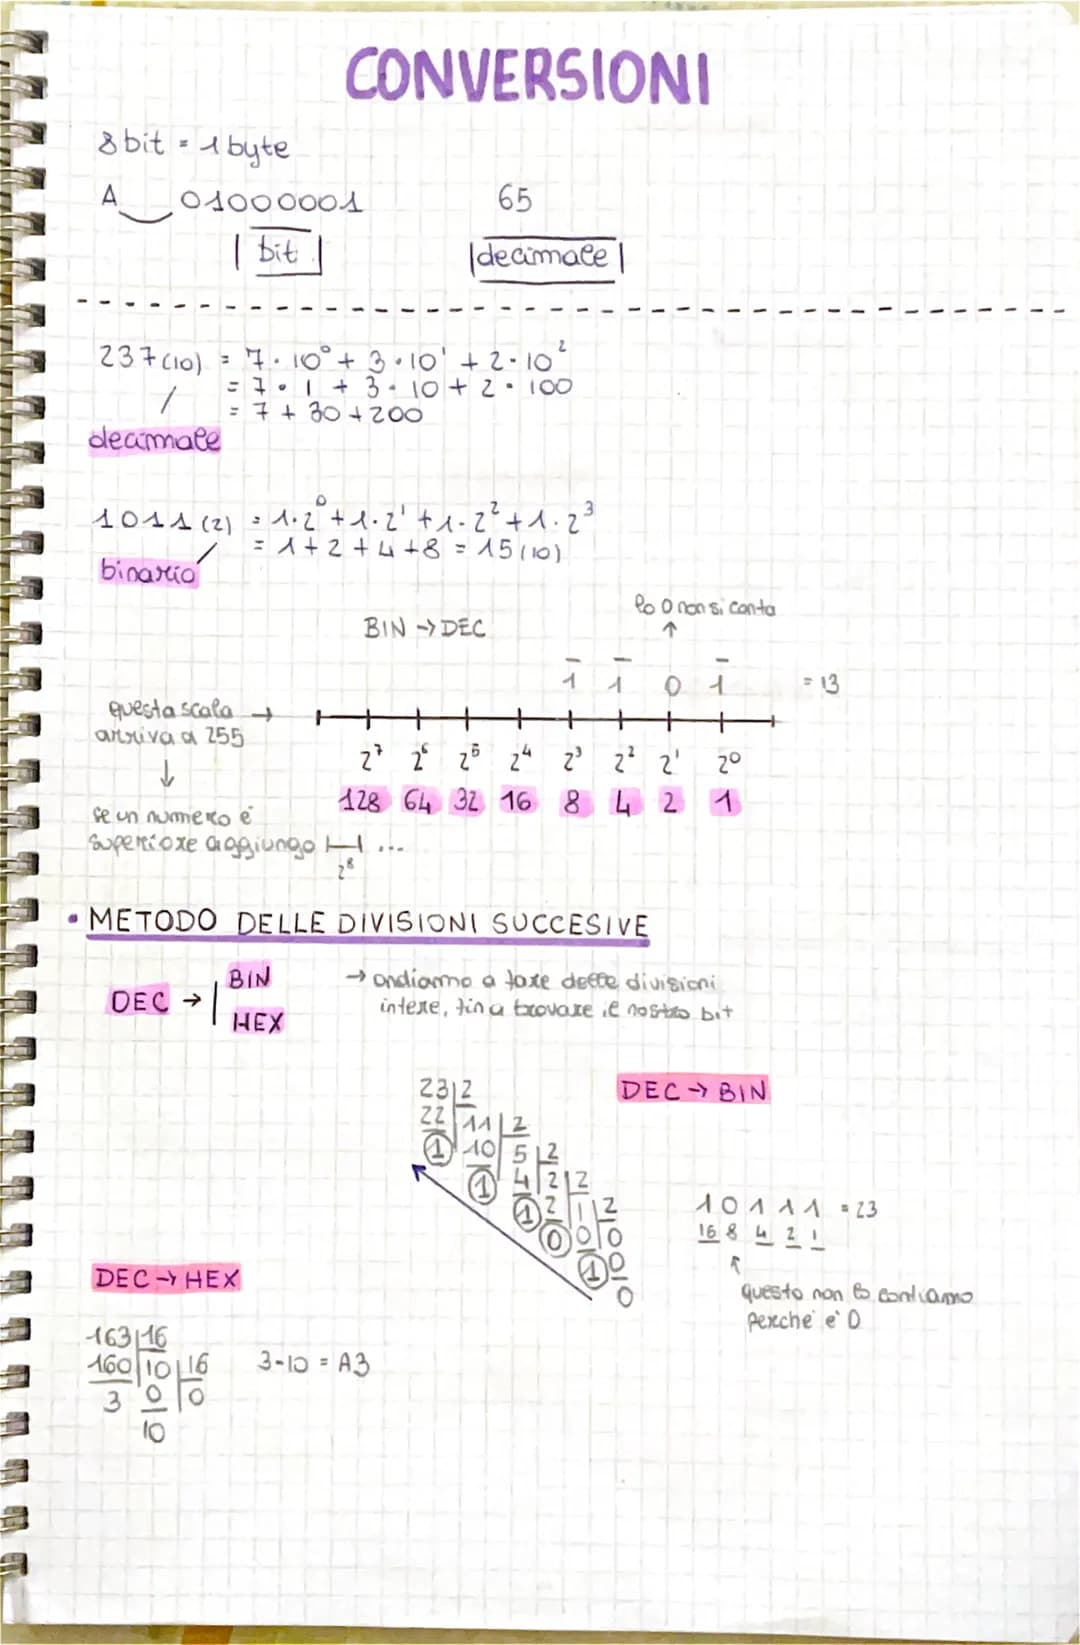 CONVERSIONI
8 bit = 1 byte
A 01000001 65
bit decimale
237(10) = 7·10⁰ + 3·10¹ + 2·10²
= 7·1 + 3·10 + 2·100
= 7 + 30 + 200
decimale
1011(2) = 1·2⁰ + 1·2¹ + 1·2² + 1·2³
= 1 + 2 + 4 + 8 = 15(10)
binario
lo 0 non si conta
BIN → DEC ↑
1 1 0 1 = 13
questa scala →
arriva a 255
2⁷ 2⁶ 2⁵ 2⁴ 2³ 2² 2¹ 2⁰
↓
128 64 32 16 8 4 2 1
se un numero è
superiore aggiungo ...
2⁸
• METODO DELLE DIVISIONI SUCCESIVE
DEC → BIN
HEX
→ andiamo a fare delle divisioni
intere, fin a trovare il nostro bit
DEC → BIN
23 2
22 11 2
1 10 5 2
1 4 2 2
1 2 1 2
0 0 0
1 0
0
10111 = 23
16 8 4 2 1
questo non lo contiamo
perché è 0
DEC → HEX
163 16
160 10 16
3 0 0
10
3-10 = A3